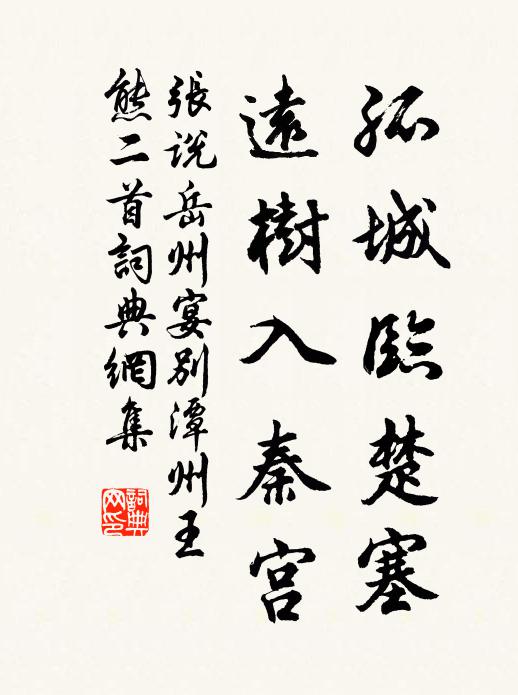 孤城臨楚塞
遠樹入秦宮
張説岳州宴別潭州王
熊二首詞典網集
詞典网印